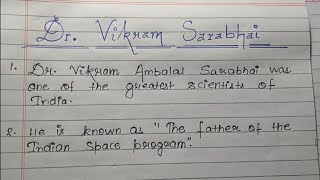 Dr. Vikram Sarabhai
1. Dr. Vikram Ambalal Sarabhai was
one of the greatest scientists of
India.
2. He is known as "The father of the
Indian Space program".